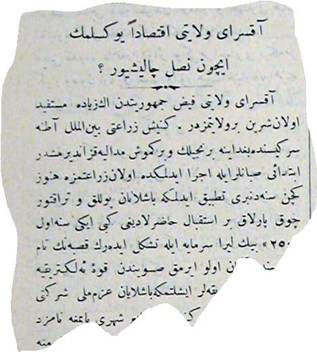 آقسرای ولایتی اقتصاداً یوکسلمك
ایچون نصل چالیشیور ؟
آقسرای ولایتی فیض جمهوریتدن اك زیاده مستفید
اولان شرین بر ولایتمزدر . کنیش زراعتی بین الملل آطنه
سرکیسنده بغداینه برنجیلك ویرکموش مدالیه قزاندیرمشدر
ابتدائی صبانلرایله اجرا ایدلمکده اولان زراعتمزه هنوز
کچن سنه دنبری تطبیق ایدلمکه باشلایان پوللق و تراقتور
چوق پارلاق بر استقبال حاضرلادیغی کبی ایکی سنه اول
«٢٥٠ بیك لیرا سرمایه ایله تشکل ایده رك قصبه نك نام
اولو ایرمق صویندن قوهٔ ئه لکتریقیه
ایشلتمکه باشلایان عزم ملی شرکتی
شهری یاننه نامزد